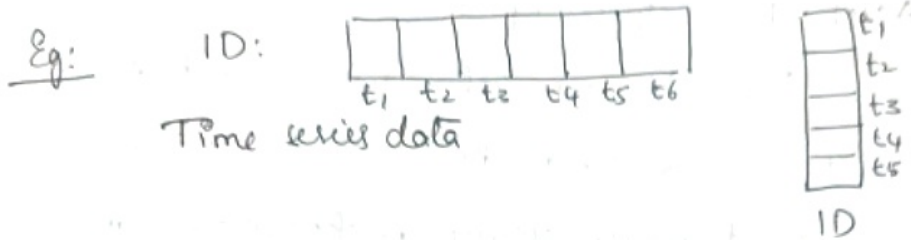 Eg: 1D:
t1 t2 t3 t4 t5 t6
Time series data
t1
t2
t3
t4
t5
1D